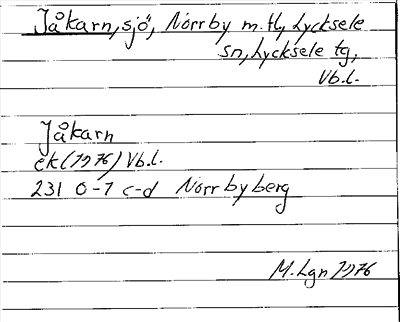 Jåkarn, sjö, Norrby m.fl, Lycksele
sn, Lycksele tg,
Vb.l.
Jåkarn
ek (1976) Vb.l.
231 0-1 c-d Norrbyberg
M. Lgn 1976